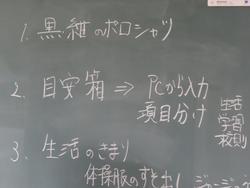 1. 黒・紺のポロシャツ
2. 目安箱 ⇒ PCから入力
項目分け
生活
学習
校則
3. 生活のきまり
体操服のすそ出し